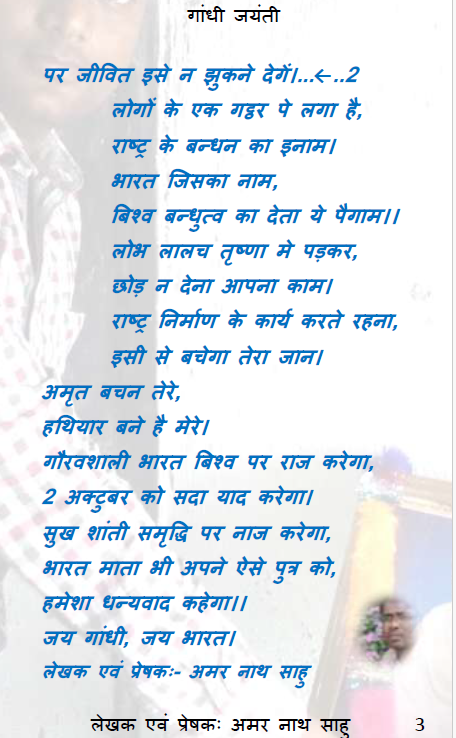 गांधी जयंती
पर जीवित इसे न झुकने देगें।...←..2
लोगों के एक गट्ठर पे लगा है,
राष्ट्र के बन्धन का इनाम।
भारत जिसका नाम,
बिश्व बन्धुत्व का देता ये पैगाम।।
लोभ लालच तृष्णा मे पड़कर,
छोड़ न देना आपना काम।
राष्ट्र निर्माण के कार्य करते रहना,
इसी से बचेगा तेरा जान।
अमृत बचन तेरे,
हथियार बने है मेरे।
गौरवशाली भारत बिश्व पर राज करेगा,
2 अक्टुबर को सदा याद करेगा।
सुख शांती समृद्धि पर नाज करेगा,
भारत माता भी अपने ऐसे पुत्र को,
हमेशा धन्यवाद कहेगा।।
जय गांधी, जय भारत।
लेखक एवं प्रेषकः- अमर नाथ साहु
लेखक एवं प्रेषकः अमर नाथ साहु 3